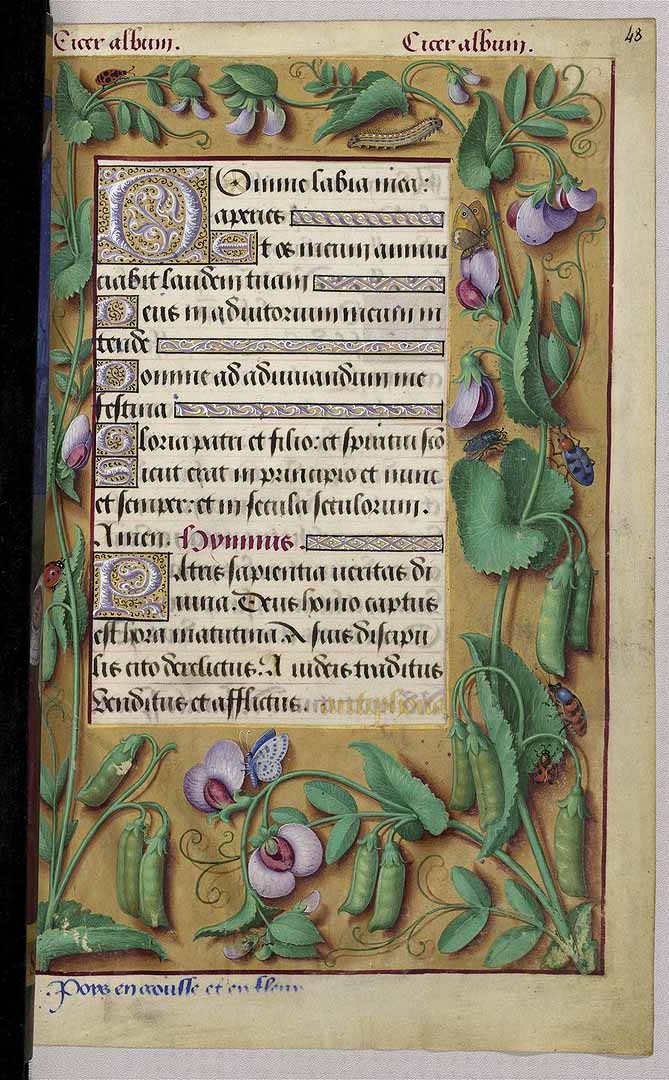 Cicer album.
Cicer album.
48
Domine labia mea:
aperies
Et os meum annun
ciabit laudem tuam
Deus in adiutorium meum in
tende
Domine ad adiuuandum me
festina
Gloria patri et filio: et spiritui sco
Sicut erat in principio et nunc
et semper: et in secula seculorum.
Amen. Hymnus.
Patris sapientia ueritas di
uina. Deus homo captus
est hora matutina. A suis discipu
lis cito derelictus. A iudeis traditus
Venditus et afflictus.
Poys en gousse et en fleur